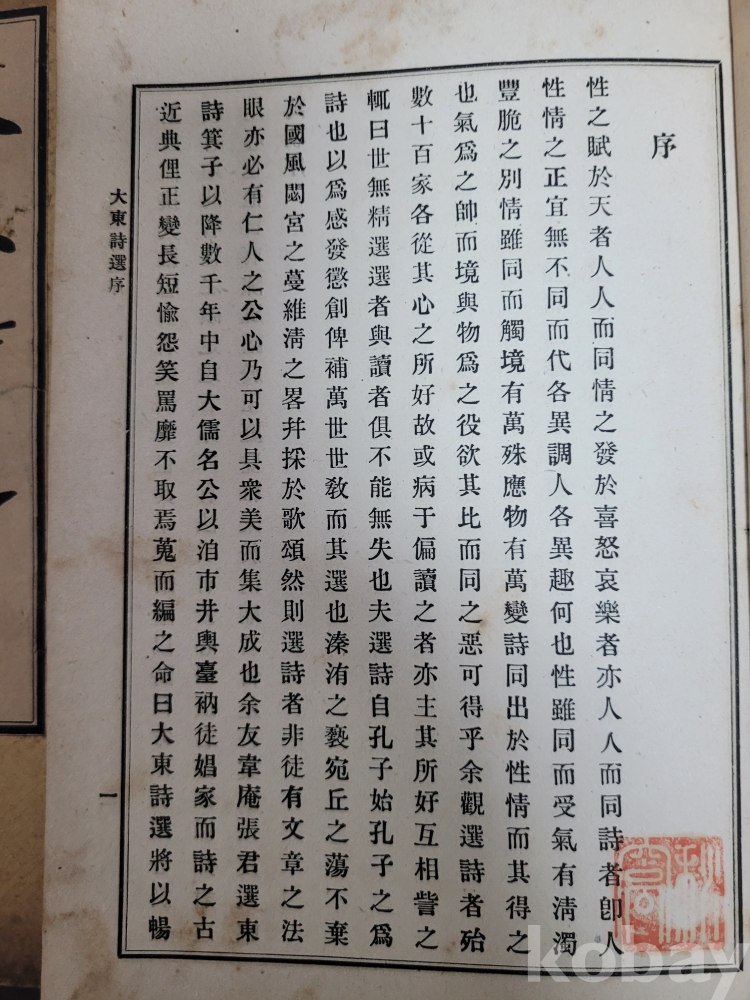 序
性之賦於天者人人而同情之發於喜怒哀樂者亦人人而同詩者卽人
性情之正宜無不同而代各異調人各異趣何也性雖同而受氣有淸濁
豐脆之別情雖同而觸境有萬殊應物有萬變詩同出於性情而其得之
也氣爲之帥而境與物爲之役欲其比而同之惡可得乎余觀選詩者殆
數十百家各從其心之所好故或病于偏讀之者亦主其所好互相訾之
輒曰世無精選選者與讀者俱不能無失也夫選詩自孔子始孔子之爲
詩也以爲感發懲創俾補萬世世敎而其選也溱洧之褻宛丘之蕩不棄
於國風閟宮之蔓維淸之畧幷採於歌頌然則選詩者非徒有文章之法
眼亦必有仁人之公心乃可以具衆美而集大成也余友韋庵張君選東
詩箕子以降數千年中自大儒名公以洎市井輿臺衲徒娼家而詩之古
近典俚正變長短愉怨笑罵靡不取焉蒐而編之命曰大東詩選將以暢
大東詩選序
一
kobay